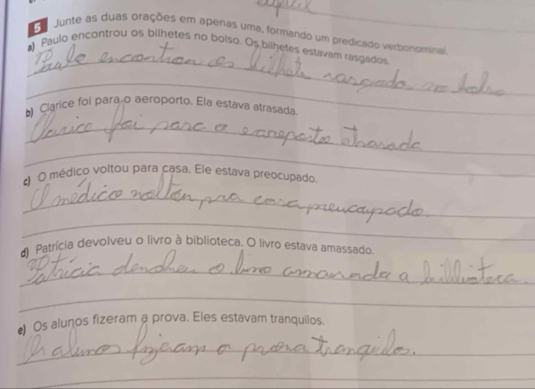 5 Junte as duas orações em apenas uma, formando um predicado verbonominal.
a) Paulo encontrou os bilhetes no bolso. Os bilhetes estavam rasgados.
Paulo encontrou os bilhete rasgado no bolso
b) Clarice foi para o aeroporto. Ela estava atrasada.
Clarice foi para o atrasada
c) O médico voltou para casa. Ele estava preocupado.
O médico pra casa preucupado.
d) Patrícia devolveu o livro à biblioteca. O livro estava amassado.
Patricia o livro a biblioteca.
e) Os alunos fizeram a prova. Eles estavam tranquilos.
alunos a prova